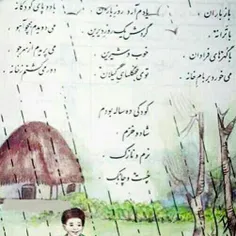 باز باران
با ترانه
با گهرهای فراوان
می خورد بر بام خانه
یادم آرد روز باران
گردش یک روز دیرین
خوب و شیرین
توی جنگلهای گیلان
کودکی ده ساله بودم
شاد و خرم
نرم و نازک
چست و چابک
با دو پای کودکانه
می دویدم همچو آهو
می پریدم از سر جو
دور می گشتم ز خانه